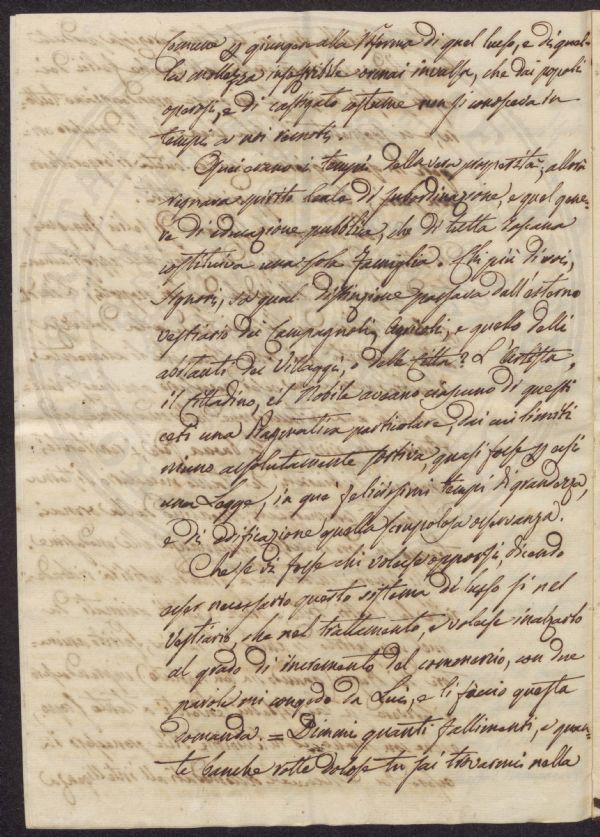 Comune p giungere alla Riforma di quel lusso, e di quel-
la mollezza insoffribile ormai invalsa, che dai popoli
operosi, e di castigato costume non si conosceva in
tempi a noi remoti.
Quei erano i tempi della vera prosperità; allora
regnava spirito leale di subordinazione, e quel gene-
re di educazione pubblica, che di tutta Toscana
costituiva una sola Famiglia. Chi più di voi,
Signori, sa qual distinzione passava dall'esterno
vestiario dei Campagnoli, Agricoli, e quello delli
abitanti dei Villaggi, o delle Città? L'Artista,
il Cittadino, e il Nobile aveano ciascuno di questi
ceti una Pragmatica particolare, dai cui limiti
niuno assolutamente sortiva, quasi fosse p essi
una Legge, in quei felicissimi tempi di grandezza,
e di edificazione quella scrupolosa osservanza.
Che se vi fosse chi volesse opporsi, dicendo
esser necessario questo sistema di lusso sì nel
Vestiario, che nel trattamento, e volesse inalzarlo
al grado di incremento del commercio, con due
parole mi congedo da Lui, e li faccio questa
domanda. = Dimmi quanti fallimenti, e quan-
te banche rotte dolose tu sai trovarmi nella